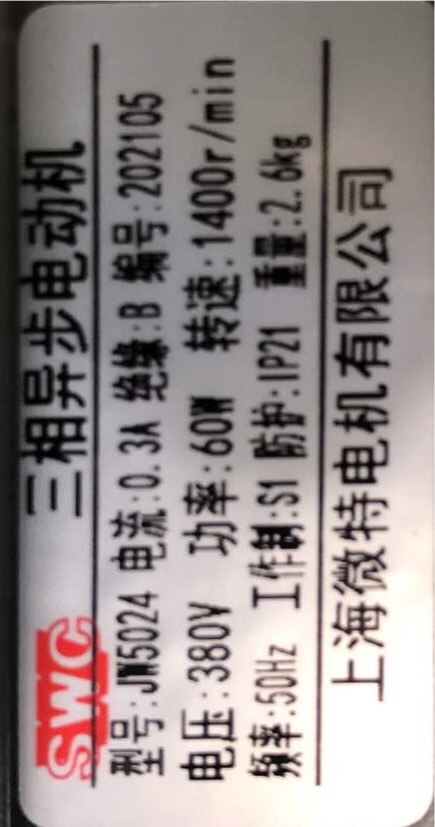 SWC 三相异步电动机
型号:JW5024 电流:0.3A 绝缘:B 编号:202105
电压:380V 功率:60W 转速:1400r/min
频率:50Hz 工作制:S1 防护:IP21 重量:2.6kg
上海微特电机有限公司